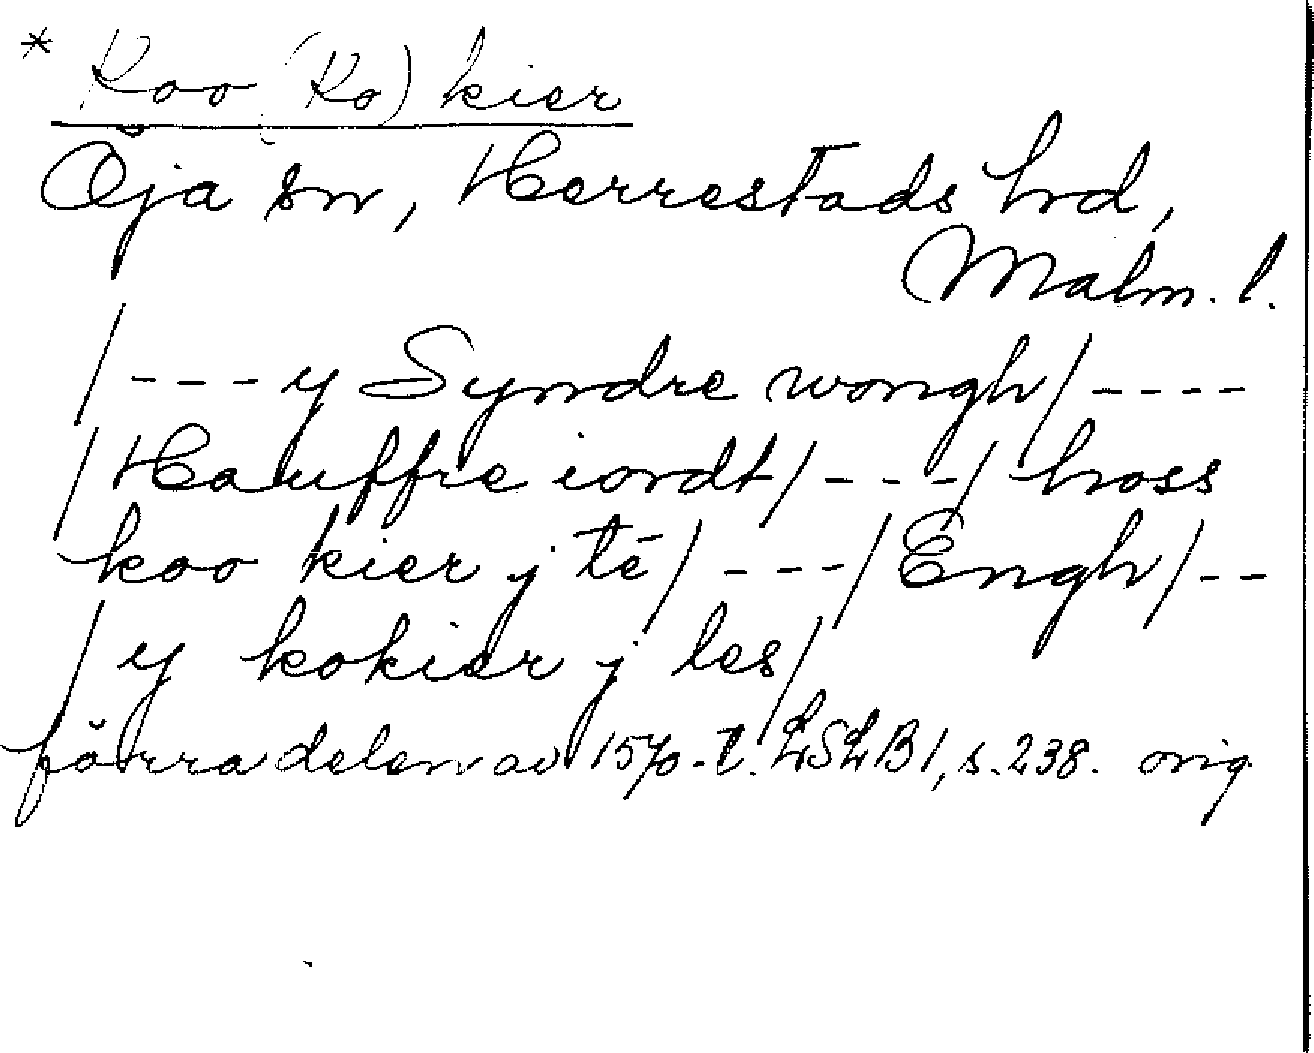 * Koo (Ko) kier
Öja sn, Herrestads hd,
Malm. l.
/---y Syndre wongh/----
/Hauffre iordt/---/ hoss
koo kier j té/---/Engh/--
/y kokier j les/
förra delen av 1570-t. LSLB1, s. 238. orig.